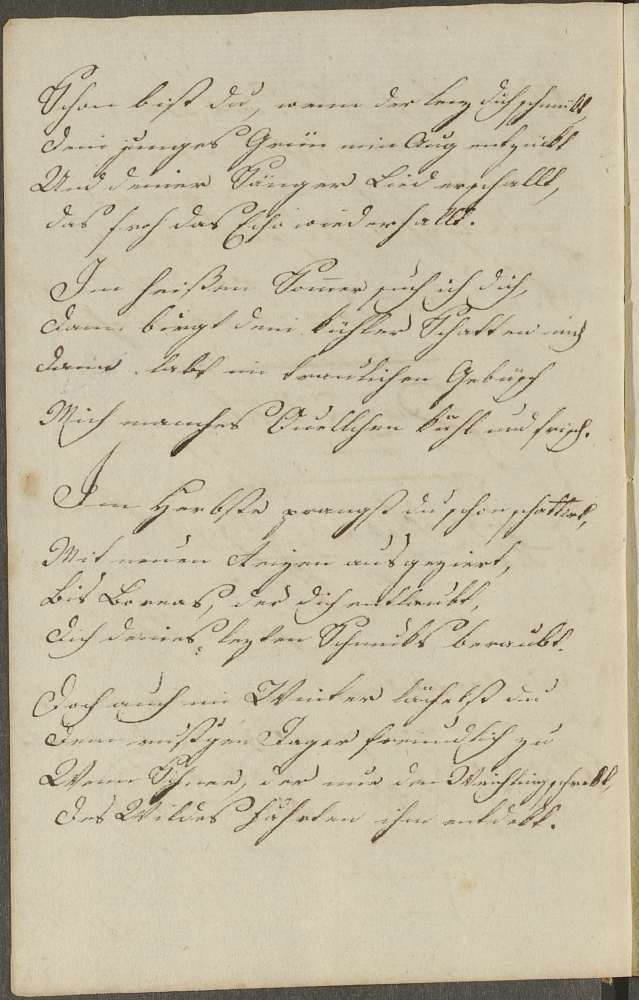 Schön bist du, wenn der Lenz dich schmückt,
Dein junges Grün mein Aug entzückt
Und deiner Sänger Lied erschallt,
das froh das Echo wiederhallt.
Im heißen Sommer such ich dich,
Dann birgt dein kühler Schatten mich
Dann labt im traulichen Gebüsch
Mich manches Quellchen kühl und frisch.
Im Herbste prangst du schön schattiert,
Mit neuen Reizen ausgeziert,
Bis Boreas, der dich entlaubt,
Dich deines lezten Schmucks beraubt.
Doch auch im Winter lächelst du
Dem Jäger freundlich zu
Wenn Schnee, der nur den Weichling schrekt,
Des Wildes Fährten ihm entdekt.